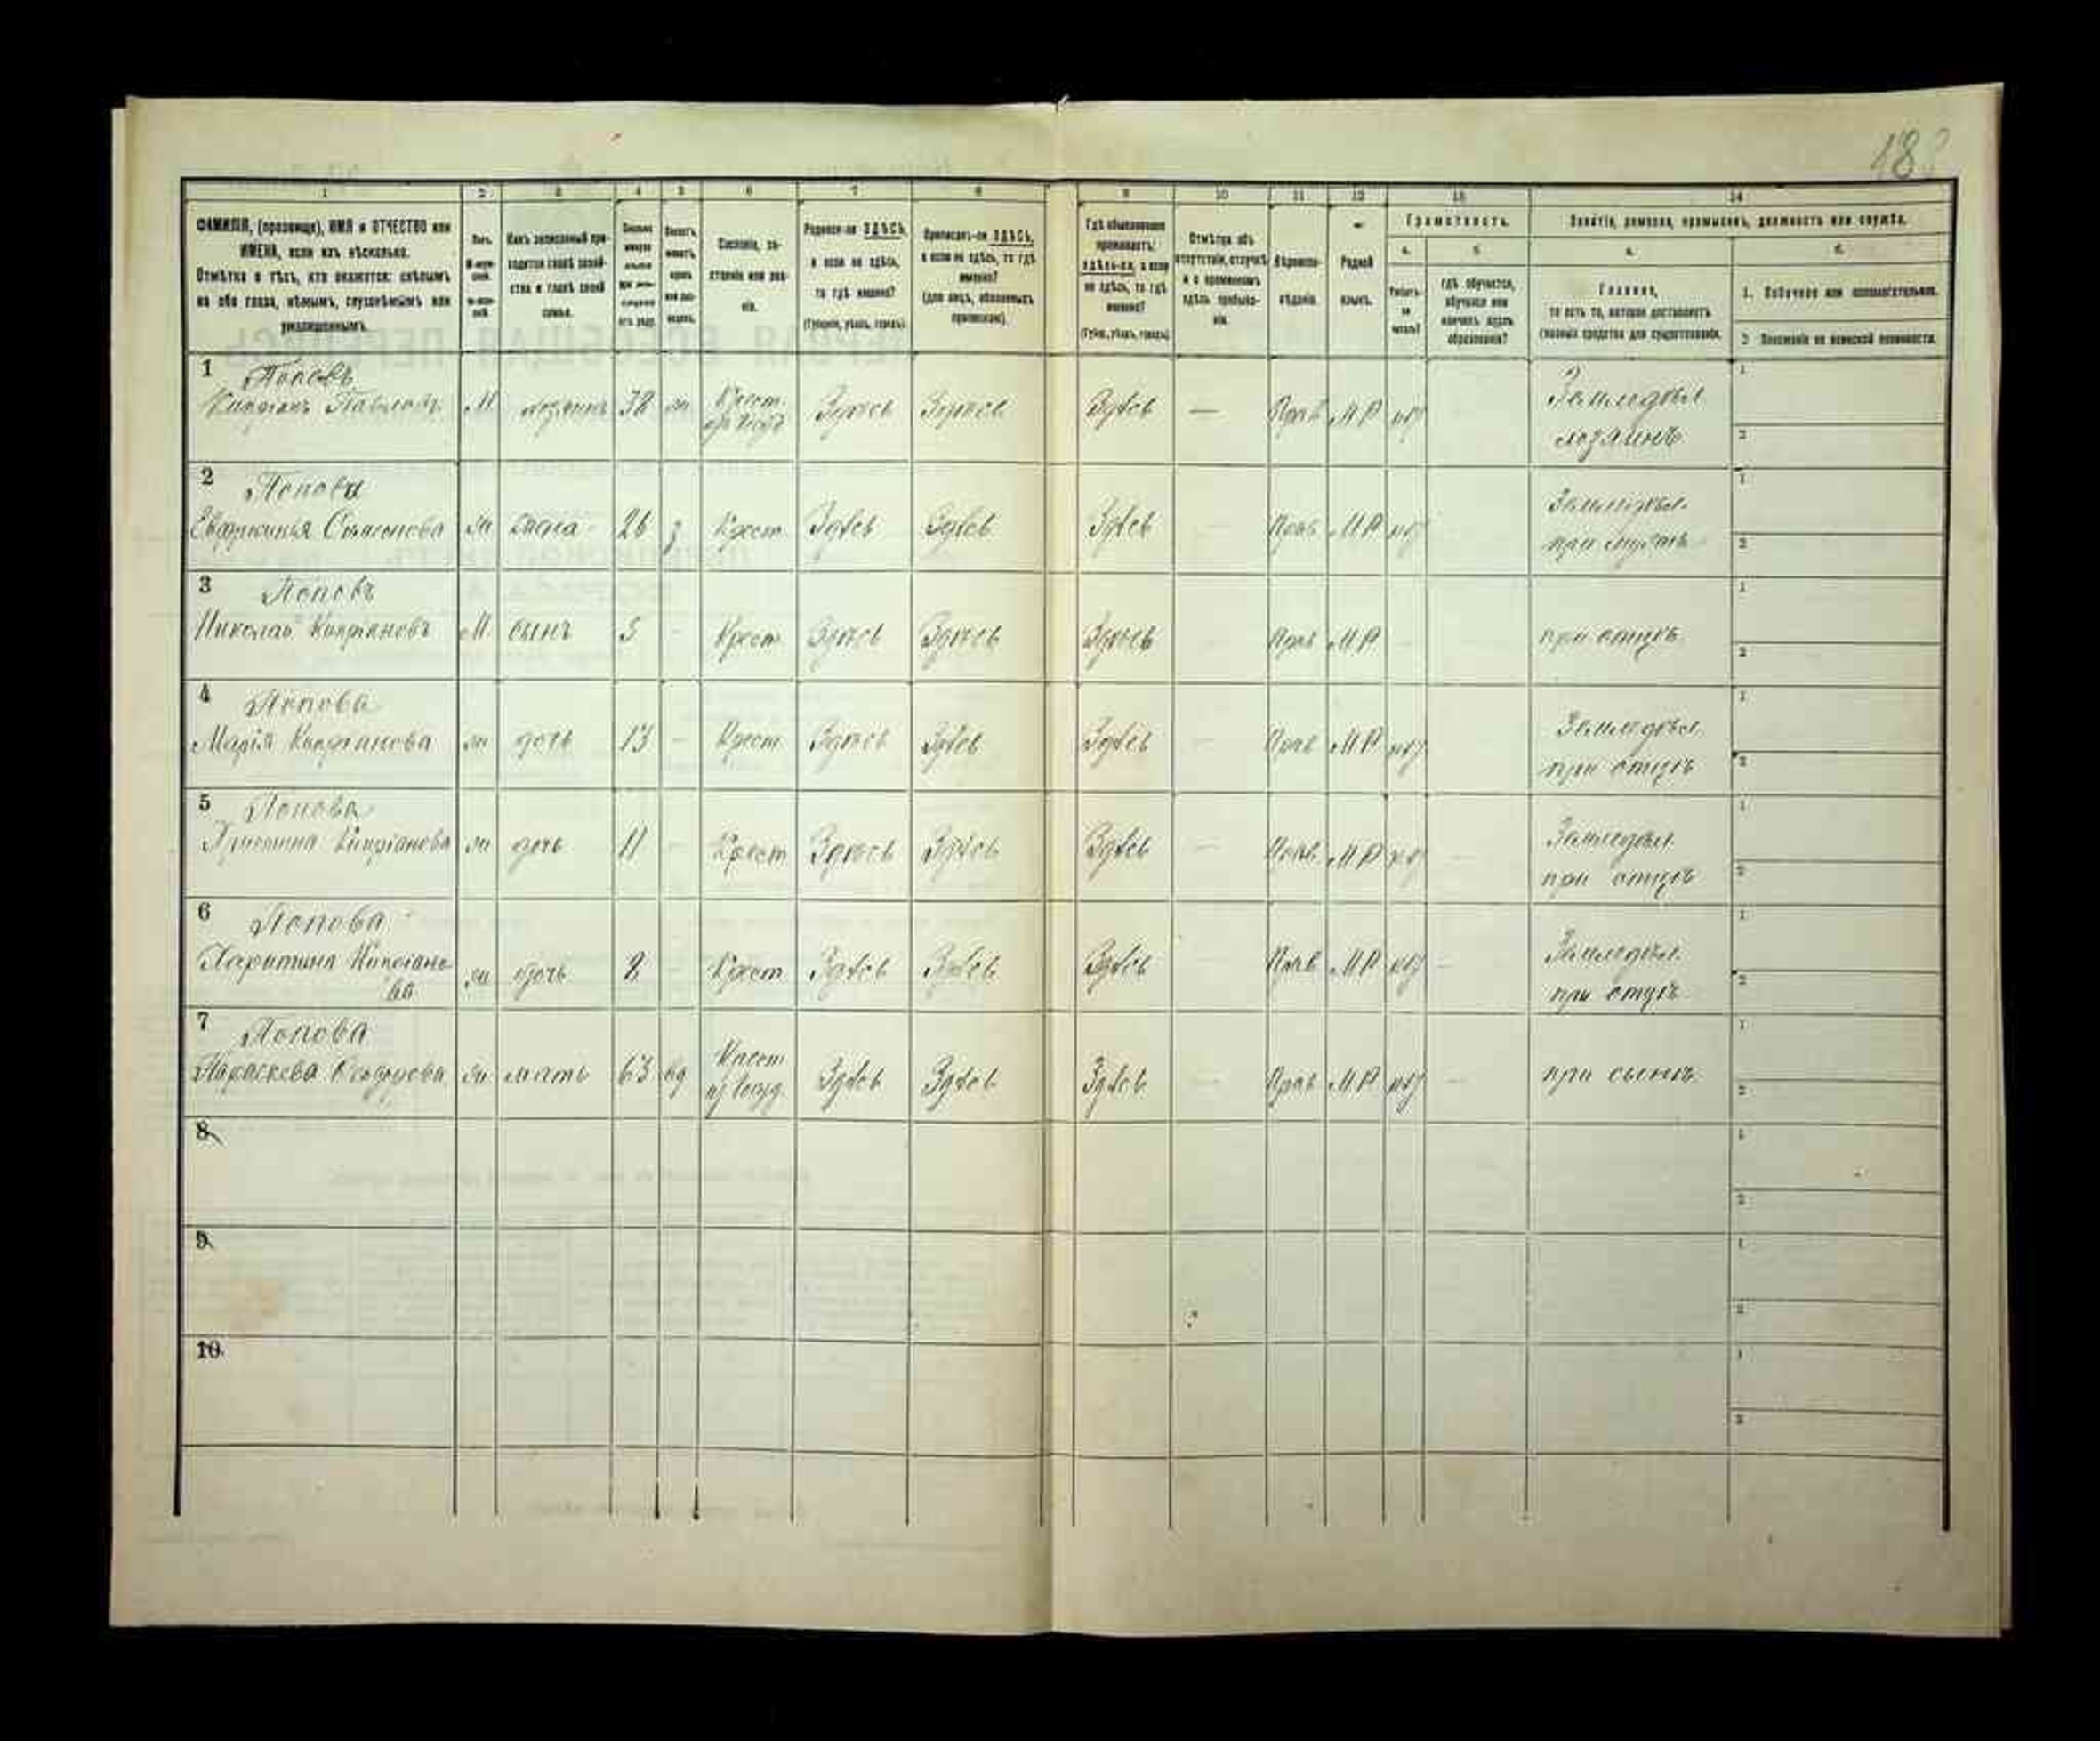 18
1 2 3 4 5 6 7 8 9 10 11 12 13 14
ФАМИЛІЯ, (прозвище), ИМЯ и ОТЧЕСТВО или
ИМЕНА, если ихъ нѣсколько.
Отмѣтка о тѣхъ, кто окажется: слѣпымъ
на оба глаза, нѣмымъ, глухонѣмымъ или
умалишеннымъ.
Полъ.
Какъ записанный при-
ходится главѣ хозяй-
ства и главѣ своей
семьи.
Сословіе, со-
стояніе или зва-
ніе.
Родился-ли ЗДѢСЬ,
а если не здѣсь,
то гдѣ именно?
(Губернія, уѣздъ, городъ).
Приписанъ-ли ЗДѢСЬ,
а если не здѣсь, то гдѣ
именно?
(для лицъ, обязанныхъ
припискою).
Гдѣ обыкновенно
проживаетъ:
здѣсь-ли, а если
не здѣсь, то гдѣ
именно?
(Губ., уѣздъ, городъ).
Отмѣтка объ
отсутствіи, отлучкѣ
и о временномъ
здѣсь пребыва-
ніи.
Вѣроиспо-
вѣданіе.
Родной
языкъ.
Грамотность.
а. б.
Умѣетъ-
ли
читать?
гдѣ обучается,
обучался или
кончилъ курсъ
образованія?
Занятіе, ремесло, промыселъ, должность или служба.
а. б.
Главное,
то есть то, которое доставляетъ
главныя средства для существованія.
1. Побочное или вспомогательное.
2 Положеніе по воинской повинности.
1 Поповъ
Кипріанъ Павловъ М хозяинъ 38 Крест. Здѣсь Здѣсь Здѣсь — Прав МР Земледѣл
хозяинъ
2 Попова
Евфросинья Симонова жена 26 Крест Здѣсь Здѣсь Здѣсь Прав МР Земледѣл.
при мужѣ
3 Поповъ
Николай Кипріановъ М сынъ 5 - Крест Здѣсь Здѣсь Здѣсь Прав МР при отцѣ
4 Попова
Марія Кипріанова дочь 13 - Крест Здѣсь Здѣсь Здѣсь — Прав МР Земледѣл
при отцѣ
5 Попова
Христина Кипріанова дочь 11 - Крест Здѣсь Здѣсь Здѣсь — Прав МР Земледѣл
при отцѣ
6 Попова
Харитина Кипріано
ва дочь 8 Крест Здѣсь Здѣсь Здѣсь — Прав МР Земледѣл.
при отцѣ
7 Попова
Параскева Ѳеодорова мать 63 вд Крест
из Госуд. Здѣсь Здѣсь Здѣсь — Прав МР при сынѣ
8
9
10